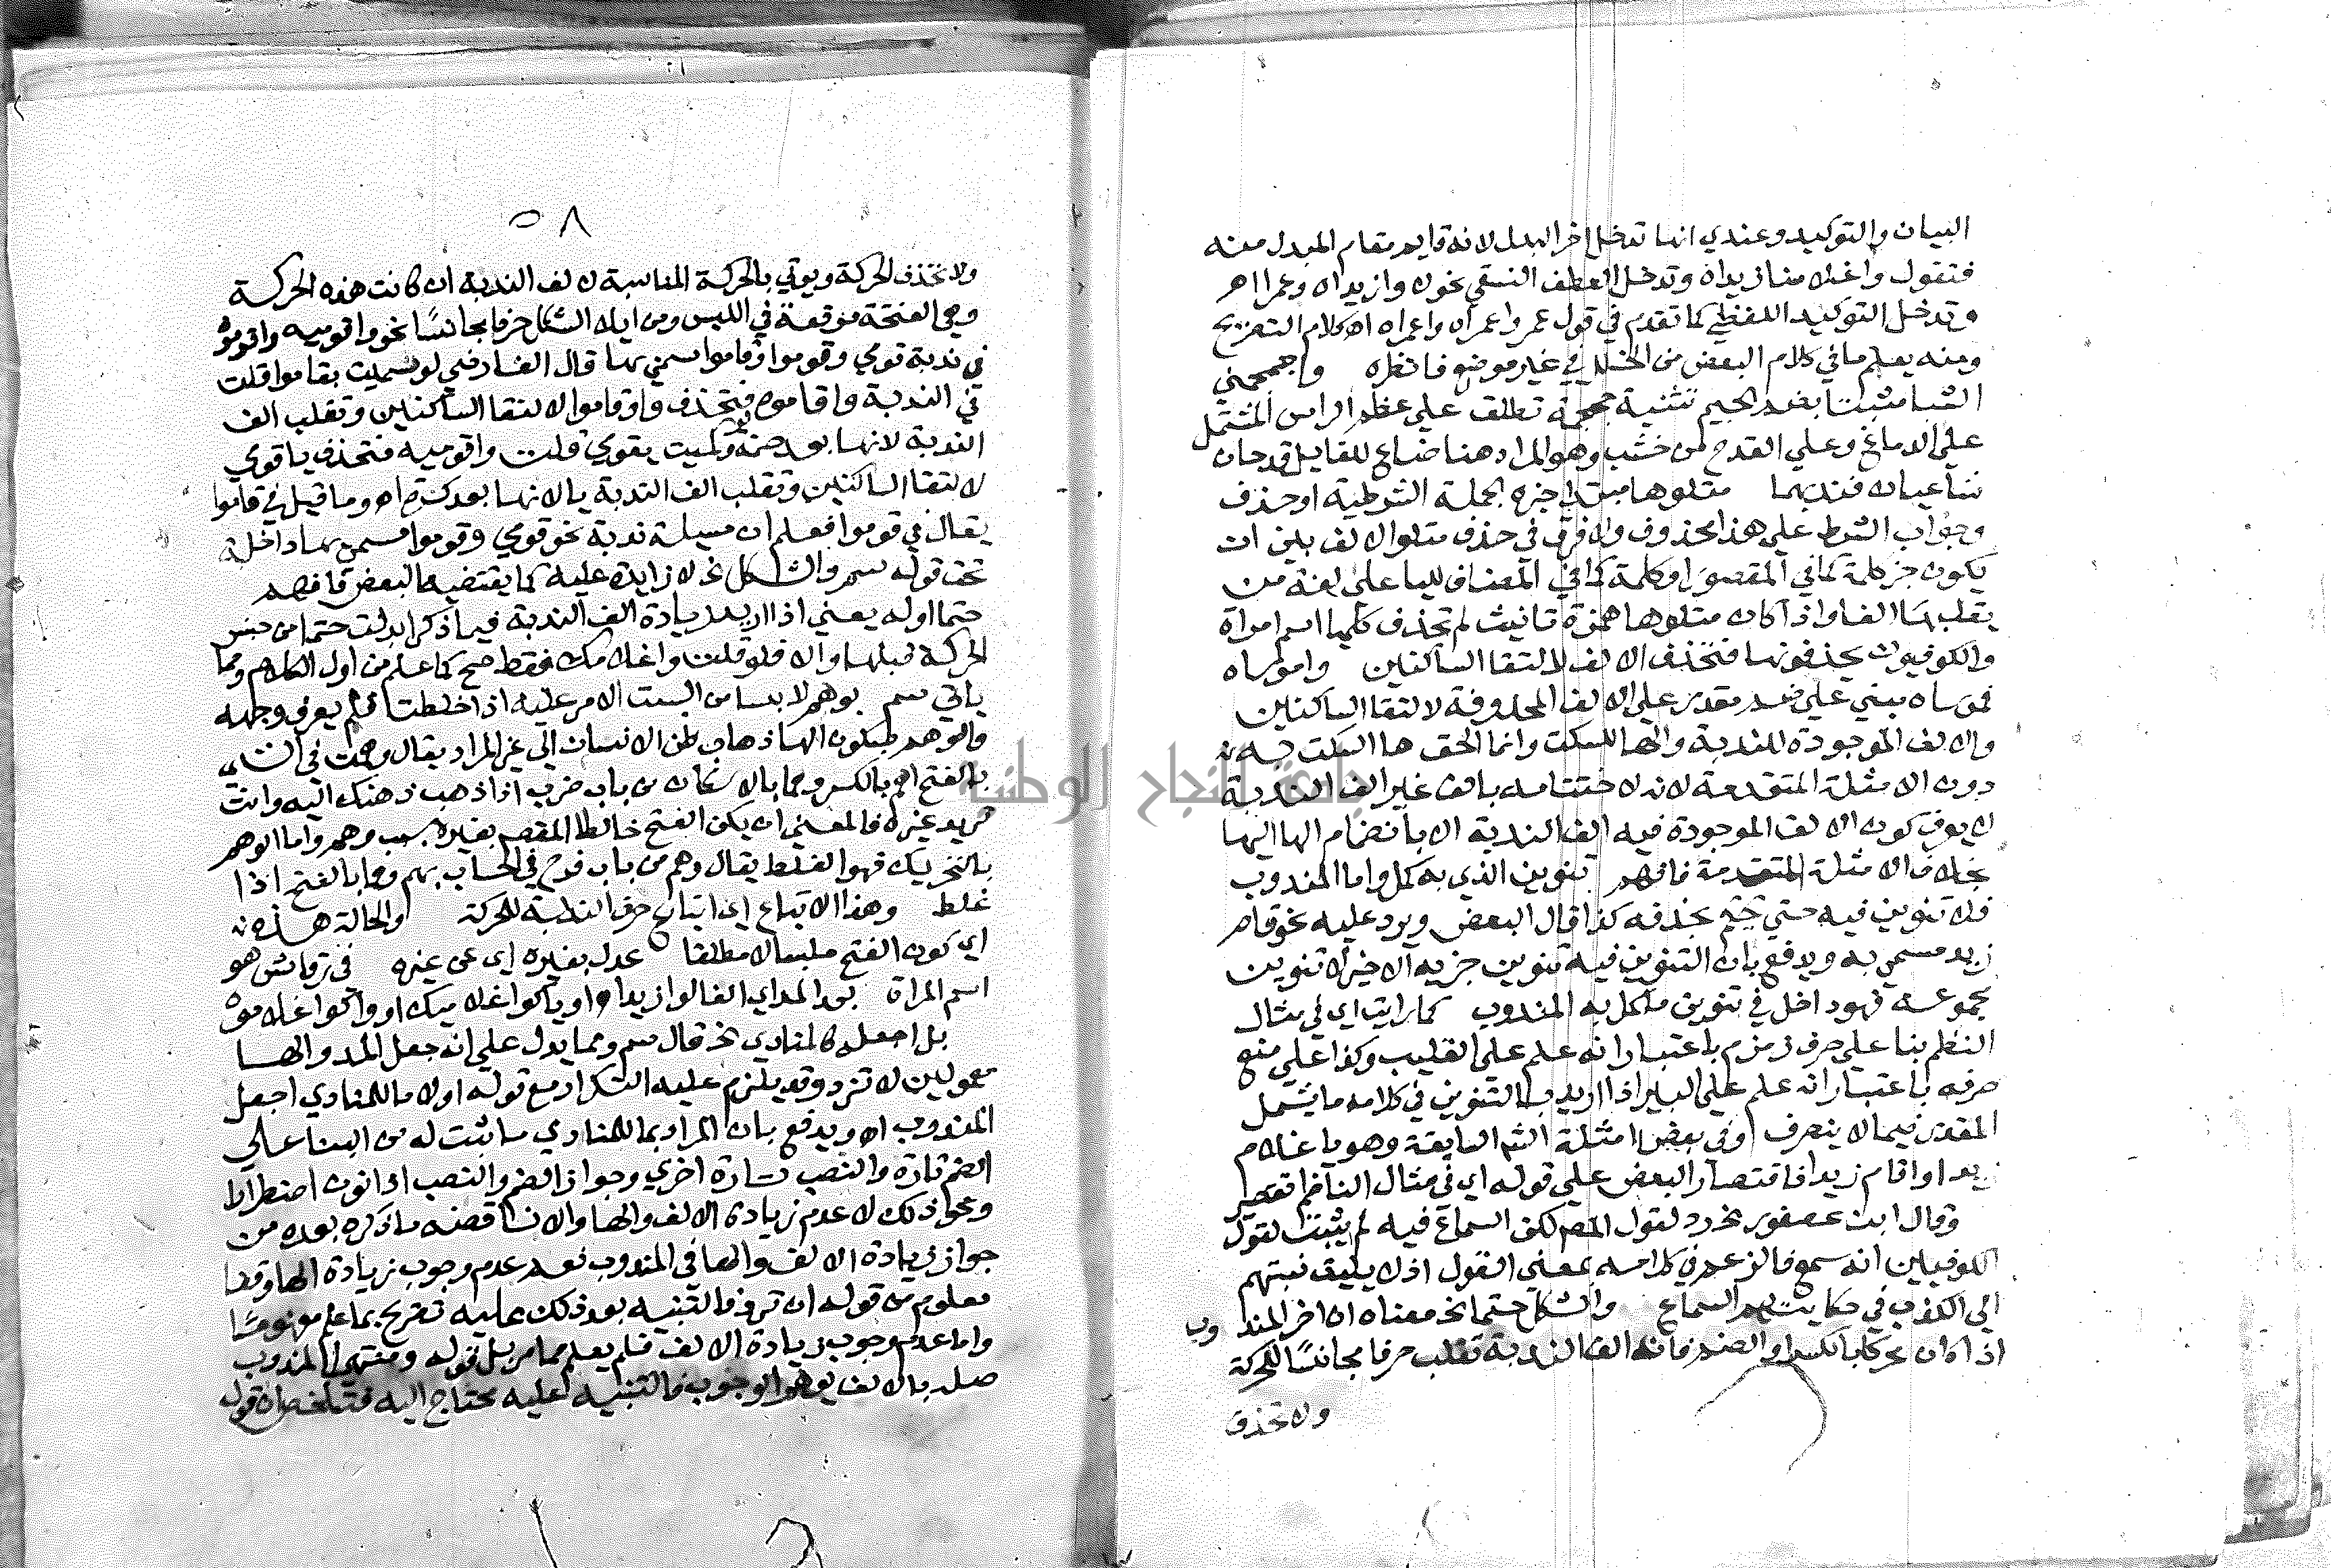 البيان والتوكيد وعندي انها تدخل اخر البدل لانه قايم مقام المبدل منه
فتقول واغلامنا زيداه وتدخل العطف النسقي نحو وازيداه وعمراه اهـ
وتدخل التوكيد اللفظي كما تقدم في قول عمر واعمراه واعمراه اه كلام التصريح
ومنه يعلم ما في كلام البعض من الخلل في غير موضع فانظره واجمجمتي
الشاميتينا بضم الجيم تثنية جمجمة تطلق على عظم الراس المشتمل
على الدماغ وعلى القدح من خشب وهو المراد هنا ضاع للقايل قدحان
شاميان فندبهما متلوها مبتدا خبره الجملة الشرطية او حذف
وجواب الشرط على هذا محذوف ولا فرق في حذف متلو الالف بين ان
يكون جز كلمة كما في المقصور او كلمة كما في المضاف لليا على لغة من
يقلبها الفا واذا كان متلوها همزة تانيث لم تحذف كلها اسم امراة
والكوفيون يحذفونها فتحذف الالف لالتقا الساكنين واموساه
فموساه مبني على ضم مقدر على الالف المحذوفة لالتقا الساكنين
والالف الموجودة للندبة والها للسكت وانما الحق ها السكت به
دون الامثلة المتقدمة لانه لاختتامه بالف غير الف الندبة
لا يعرف كون الالف الموجودة فيه الف الندبة الا بانضمام الها اليها
بخلاف الامثلة المتقدمة فافهم تنوين الذي به كمل واما المندوب
فلا تنوين فيه حتي يحكم بحذفه كذا قال البعض ويرد عليه نحو قام
زيد مسمي به ويدفع بان التنوين فيه تنوين جزيه الاخير لا تنوين
مجموعه فهو داخل في تنوين ما كمل به المندوب كما رايت اي في مثال
النظم بنا على صرف زمزم باعتبار انه علم على القليب وكذا على منع
صرفه باعتبار انه علم على البير اذا اريد بالتنوين في كلامه ما يشمل
المقدر فيما لا ينصرف وفي بعض امثلة الشم السابقة وهو يا غلام
زيدا واقام زيدا فاقتصار البعض على قوله اي في مثال الناظم تقصير
وقال ابن عصفور نحو رد لقول المصم لكن السماع فيه لم يثبت لقول
الكوفيين انه سمع فالزعم في كلامه بمعني القول اذ لا يليق نسبتهم
الي الكذب في حكايتهم السماع والشكل حتما نحو معناه ان اخر المندوب
اذا كان محركا بالكسر او الضم فان الف الندبة تقلب حرفا مجانسا للحركة
ولا تحذف
٥٨
ولا تحذف الحركة ويوتي بالحركة المناسبة لالف الندبة ان كانت هذه الحركة
وهي الفتحة موقعة في اللبس ومن ايلا الشكل حرفا مجانسا نحو واقوميه واقوموه
في ندبة قومي وقوموا وقاموا مسمي بها قال الفارضي لو سميت بقاموا قلت
في الندبة واقاموه فتحذف واو قاموا لالتقا الساكنين وتقلب الف
الندبة لانها بعد ضمة ولو سميت بقومي قلت واقوميه فتحذف يا قومي
لالتقا الساكنين وتقلب الف الندبة يا لانها بعد كسرة اه وما قيل في قاموا
يقال في قوموا فعلم ان مسيلة ندبة نحو قومي وقوموا مسمي بهما داخلة
تحت قوله سم والشكل نحو لا زايدة عليه كما يقتضيه البعض فافهم
حتما اوله يعني اذا اريد زيادة الف الندبة فيما ذكر ابدلت حتما من جنس
الحركة قبلها والا فلو قلت واغلامك فقط صح كما علم من اول الكلام ومما
ياتي سم بوهم لابسا من البست الامر عليه اذا خلطت فلم يعرف وجهه
والوهم بسكون الها ذهاب ظن الانسان الي غير المراد يقال وهمت في الشي
بالفتح اهم بالكسر وهما بالاسكان من باب ضرب اذا ذهب ذهنك اليه وانت
تريد غيره فالمعني ان يكن الفتح خالطا المقصم بغيره بسبب وهم واما الوهم
بالتحريك فهو الغلط يقال وهم من باب فرح في الحساب يهم وهما بالفتح اذا
غلط وهذا الاتباع اي اتباع حرف الندبة للحركة والحالة هذه
اي كون الفتح ملبسا لا مطلقا عدل بغيره اي عن غيره في رقاش هو
اسم المراة بعد المد اي الف الوازيداه او يا كوا غلاميك او واو كوا غلامهوه
بل اجعله كالمنادي نحو قال سم ومما يدل على انه جعل المد والها
معمولين لا تزد وقد يلزم عليه التكرار مع قوله اولا ما للمنادي اجعل
المندوب اه ويدفع بان المراد بما للمنادي ما يثبت له من البنا على
الضم تارة والنصب تارة اخري وجواز الضم والنصب اذا نون اضطرارا
ونحو ذلك لا عدم زيادة الالف والها والا ناقضه ما ذكره بعده من
جواز زيادة الالف والها في المندوب نعم عدم وجوب زيادة الها وقفا
معلوم من قوله ان ترد فالتنبيه بعد ذلك عليه تصريح بما علم مفهوما
واما عدم وجوب زيادة الالف فلم يعلم مما مر بل قوله ومنتهي المندوب
صله بالالف يوهم الوجوب فالتنبيه عليه محتاج اليه فتلخص ان قول